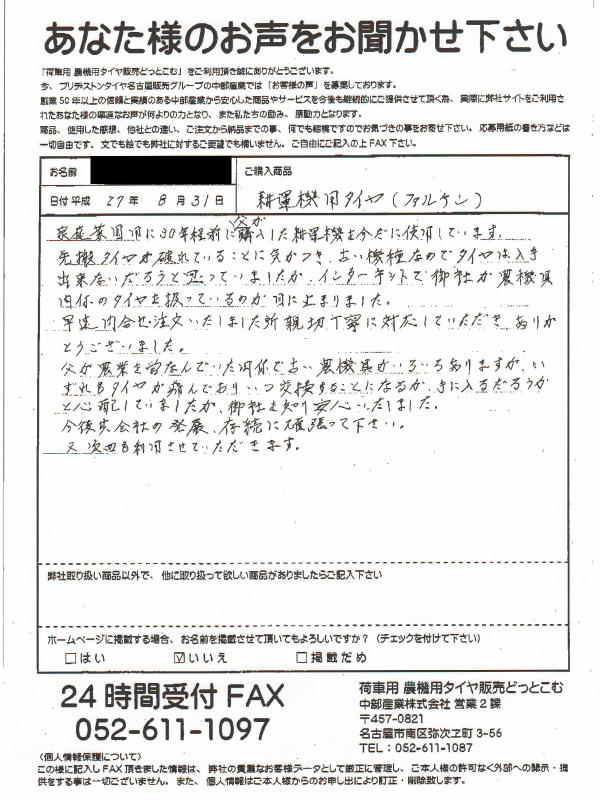 あなた様のお声をお聞かせ下さい
「荷車用 農機用タイヤ販売どっとこむ」をご利用頂き誠にありがとうございます。
今、ブリヂストンタイヤ名古屋販売グループの中部産業では「お客様の声」を募集しております。
創業50年以上の信頼と実績のある中部産業から安心した商品やサービスを今後も継続的にご提供させて頂く為、実際に弊社サイトをご利用さ
れたあなた様の率直なお声が何よりの力となり、また私たちの励み、原動力となります。
商品、使用した感想、他社との違い、ご注文から納品までの事、何でも結構ですのでお気づきの事をお寄せ下さい。応募用紙の書き方などは
一切自由です。文でも絵でも弊社に対するご要望でも構いません。ご自由にご記入の上FAX下さい。
お名前
ご購入商品
日付平成 27年 8月31日
耕運機用タイヤ(ファルケン)
父が
家庭菜園用に30年程前に購入した耕運機を今だに使用しています。
先般タイヤが破れていることに気がつき、古い機種なのでタイヤは入手
出来ないだろうと思っていましたが、インターネットで御社が農機具
関係のタイヤを扱っているのが目に止まりました。
早速問合せ・注文いたしました所親切丁寧に対応していただきありが
とうございました。
父が農業を営なんでいた関係で古い農機具がいろいろありますが、い
ずれもタイヤが痛んでおりいつ交換することになるか、手に入るだろうか
と心配していましたが、御社を知り安心いたしました。
今後共会社の発展、存続に頑張って下さい。
又次回も利用させていただきます。
弊社取り扱い商品以外で、他に取り扱って欲しい商品がありましたらご記入下さい
ホームページに掲載する場合、お名前を掲載させて頂いてもよろしいですか?(チェックを付けて下さい)
□はい ☑いいえ □掲載だめ
24時間受付FAX
052-611-1097
荷車用 農機用タイヤ販売どっとこむ
中部産業株式会社 営業2課
〒457-0821
名古屋市南区弥次ヱ町3-56
TEL:052-611-1087
〈個人情報保護について〉
この様に記入しFAX頂きました情報は、弊社の貴重なお客様データとして厳正に管理し、ご本人様の許可なく外部への開示・提
供をする事は一切ございません。また、個人情報はご本人様からのお申し出により訂正・削除致します。